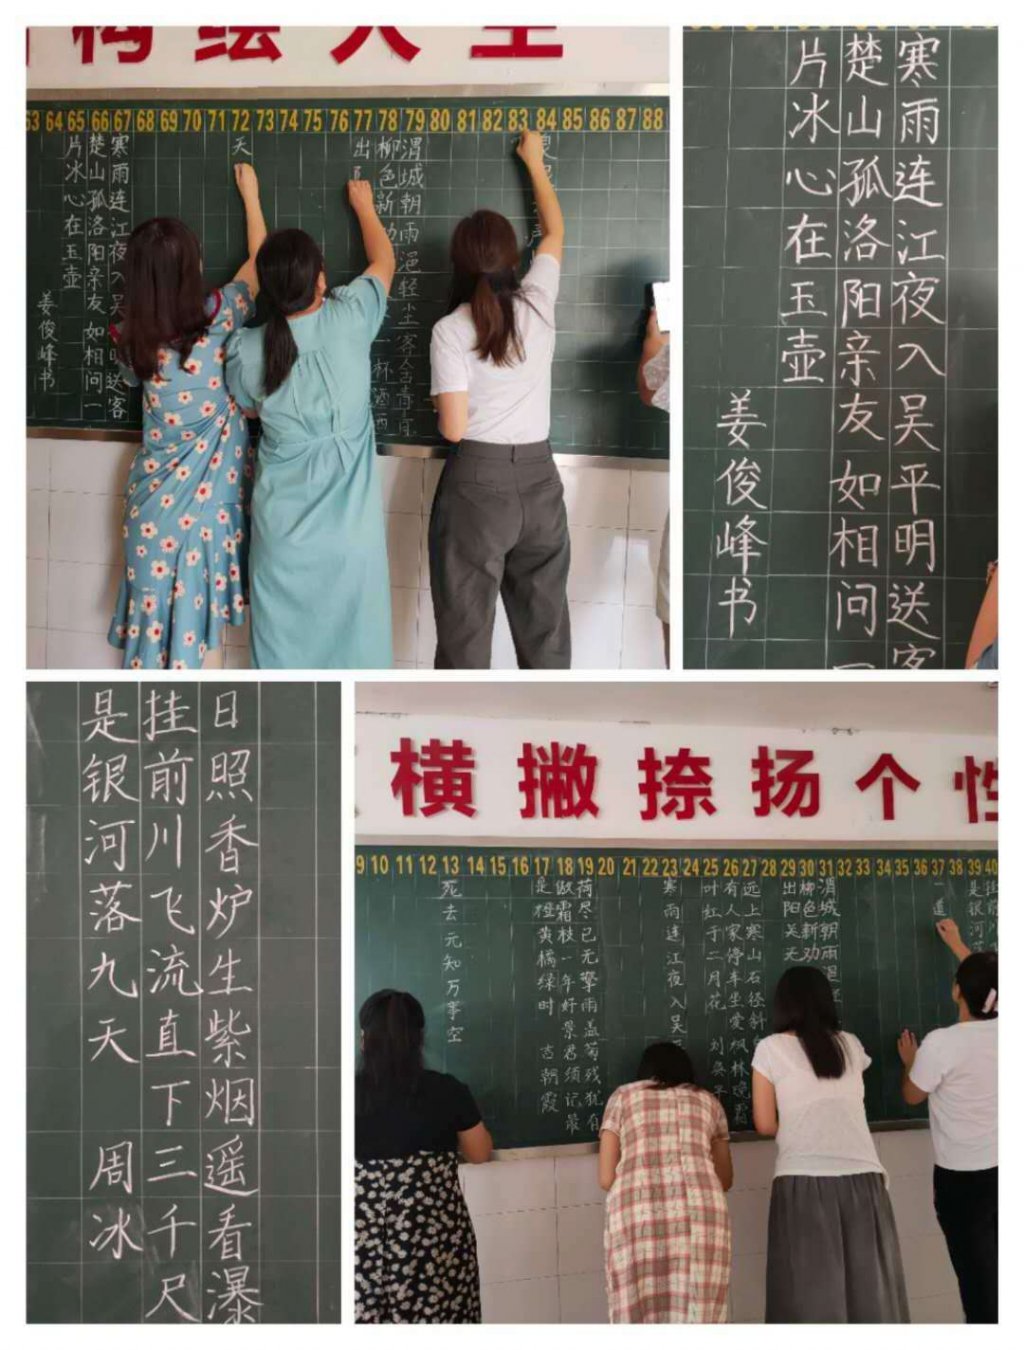 构绘人生
63 64 65 66 67 68 69 70 71 72 73 74 75 76 77 78 79 80 81 82 83 84 85 86 87 88
渭城朝雨浥轻尘客舍青
柳色新劝一杯酒西
出
天
寒雨连江夜入吴明送客
楚山孤洛阳亲友如相问一
片冰心在玉壶
姜俊峰书
寒雨连江夜入吴平明送客
楚山孤洛阳亲友如相问一
片冰心在玉壶
姜俊峰书
日照香炉生紫烟遥看瀑
挂前川飞流直下三千尺
是银河落九天 周冰
横撇捺扬个性
9 10 11 12 13 14 15 16 17 18 19 20 21 22 23 24 25 26 27 28 29 30 31 32 33 34 35 36 37 38 39 40
挂前
是银河落
一道
渭城朝雨浥
柳色新劝
出阳关无
远上寒山石径斜
有人家停车坐爱枫林晚霜
叶红于二月花 刘
寒雨连江夜入吴
荷尽已无擎雨盖菊残犹有
傲霜枝一年好景君须记最
是橙黄橘绿时 古朝霞
死去元知万事空